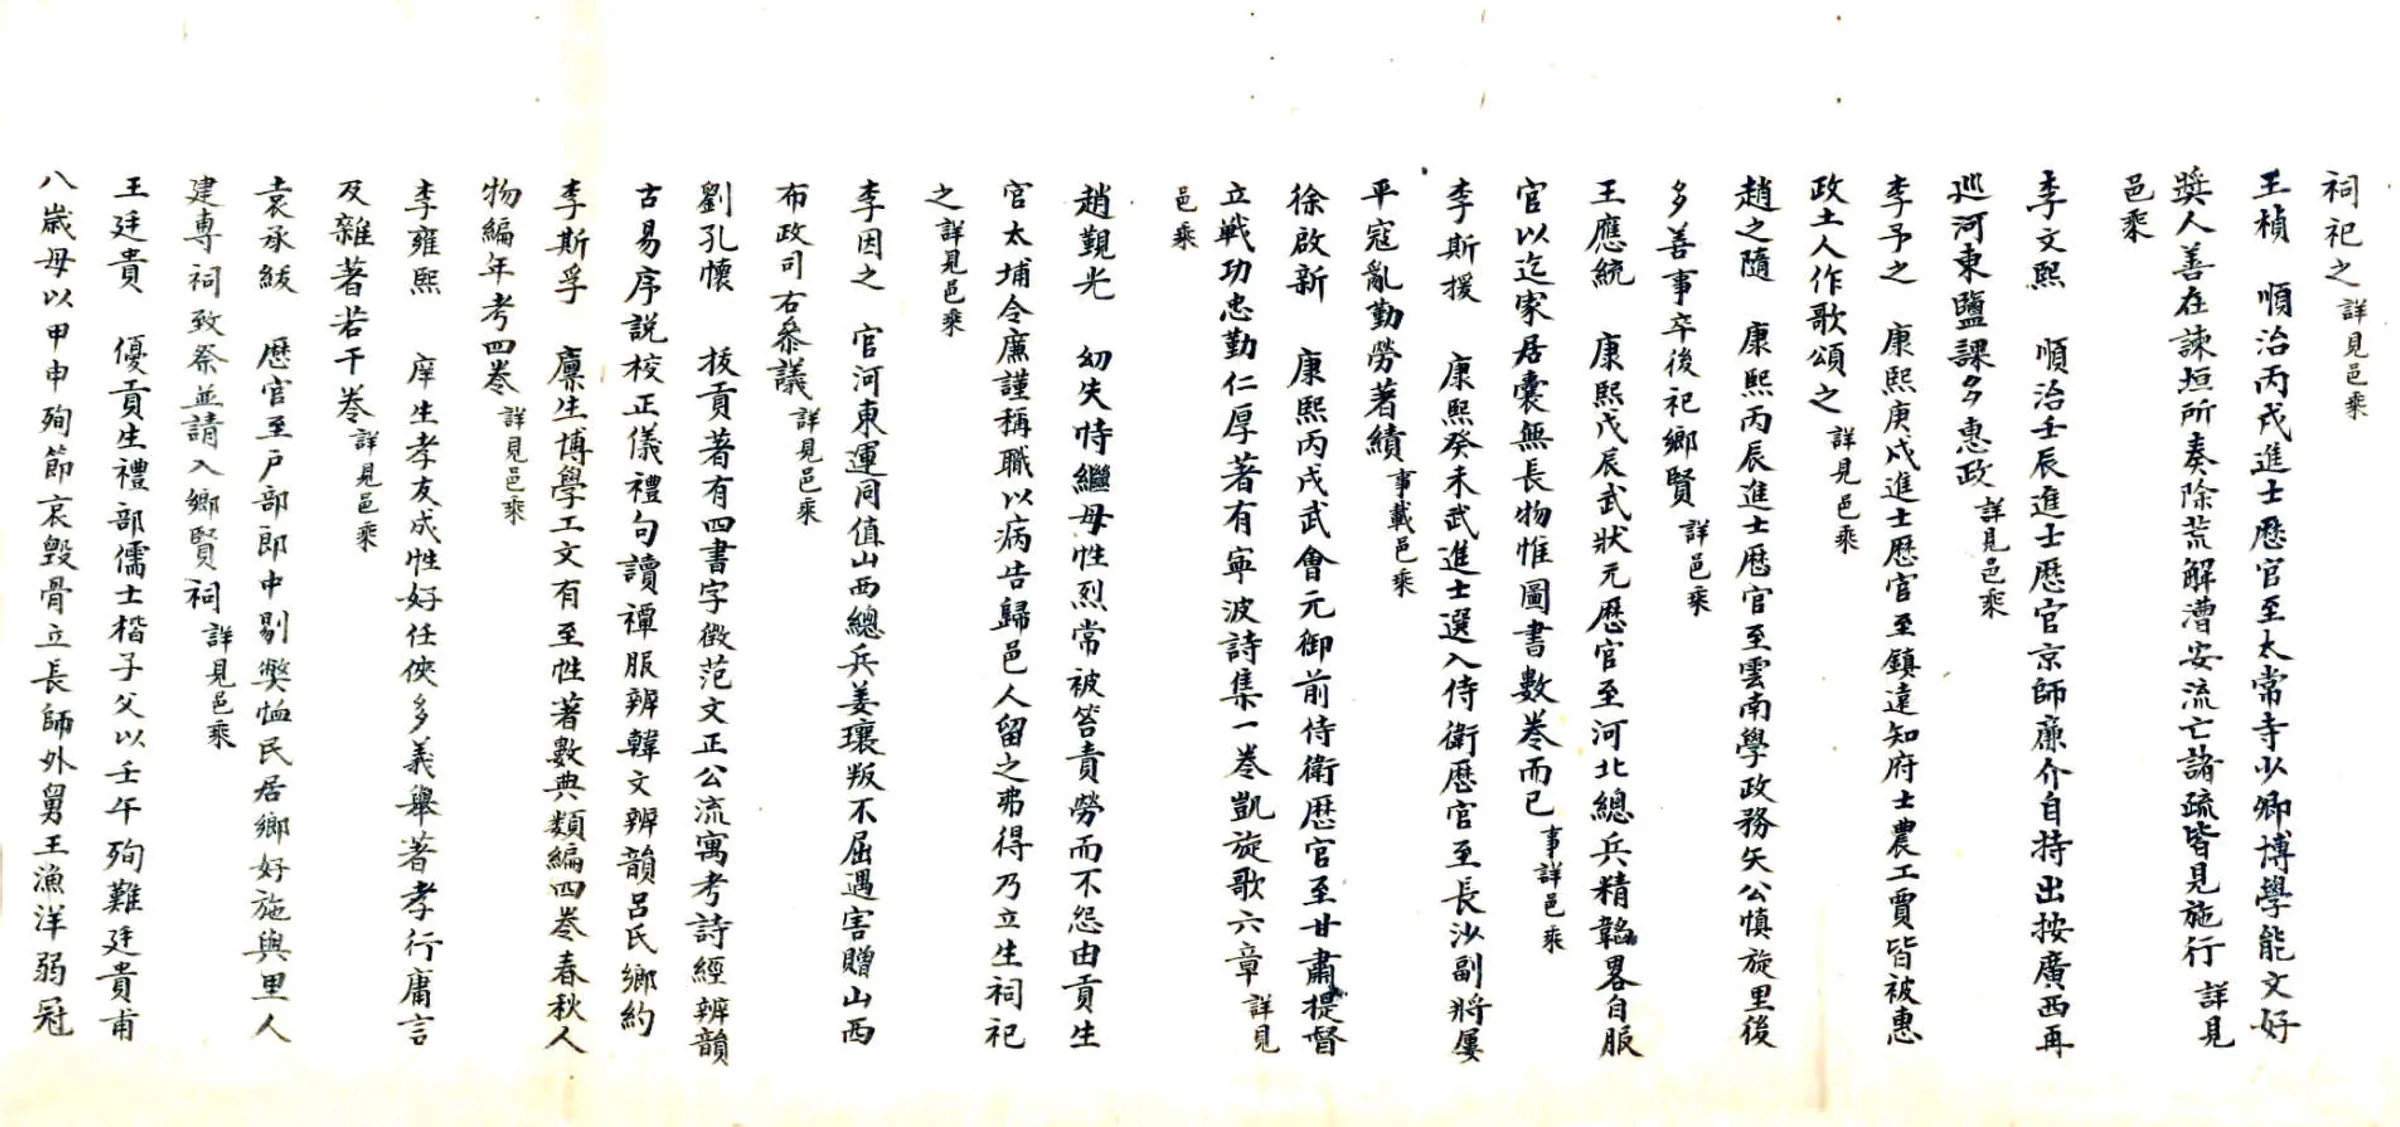 祠祀之詳見邑乘
王楨　順治丙戌進士歷官至太常寺少卿博學能文好
獎人善在諫垣所奏除荒解漕安流亡諸疏皆見施行詳見
邑乘
李文熙　順治壬辰進士歷官京師廉介自持出按廣西再
巡河東鹽課多惠政詳見邑乘
李予之　康熙庚戌進士歷官至鎮遠知府士農工賈皆被惠
政土人作歌頌之詳見邑乘
趙之隨　康熙丙辰進士歷官至雲南學政務矢公慎旋里後
多善事卒後祀鄉賢詳邑乘
王應統　康熙戊辰武狀元歷官至河北總兵精韜畧自服
官以迄家居囊無長物惟圖書數卷而已事詳邑乘
李斯援　康熙癸未武進士選入侍衛歷官至長沙副將屢
平寇亂勤勞著績事載邑乘
徐啟新　康熙丙戌武會元御前侍衛歷官至甘肅提督
立戰功忠勤仁厚著有寧波詩集一卷凱旋歌六章詳見
邑乘
趙覲光　幼失恃繼母性烈常被笞責勞而不怨由貢生
官太埔令廉謹稱職以病告歸邑人留之弗得乃立生祠祀
之詳見邑乘
李因之　官河東運同值山西總兵姜瓖叛不屈遇害贈山西
布政司右叅議詳見邑乘
劉孔懷　拔貢著有四書字徵范文正公流寓考詩經辨韻
古易序說校正儀禮句讀禫服辨韓文辨韻呂氏鄉約
李斯孚　廩生博學工文有至性著數典類編四卷春秋人
物編年考四卷詳見邑乘
李雍熙　庠生孝友成性好任俠多義舉著孝行庸言
及雜著若干卷詳見邑乘
袁承紱　歷官至戶部郎中剔獘恤民居鄉好施與里人
建專祠致祭並請入鄉賢祠詳見邑乘
王廷貴　優貢生禮部儒士楷子父以壬午殉難廷貴甫
八歲母以甲申殉節哀毀骨立長師外舅王漁洋弱冠